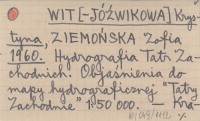 WIT [-JÓŹWIKOWA] Krys-
tyna, ZIEMOŃSKA Zofia
1960. Hydrografia Tatr Za-
chodnich. Objaśnienia do
mapy hydrograficznej "Tatry
Zachodnie" 1:50 000. — Kra-